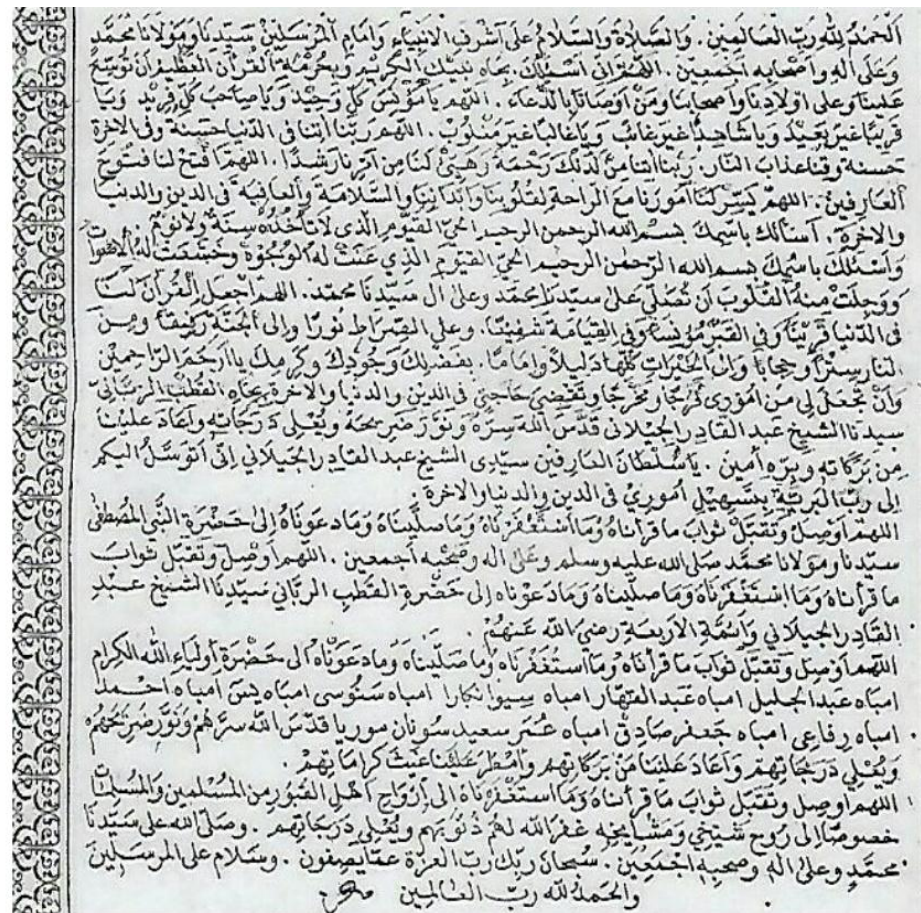 اَلْحَمْدُ لِلّٰهِ رَبِّ الْعَالَمِيْنَ . وَالصَّلَاةُ وَالسَّلَامُ عَلَى اَشْرَفِ الْاَنْبِيَاءِ وَاِمَامِ الْمُرْسَلِيْنَ سَيِّدِنَا وَمَوْلَانَا مُحَمَّدٍ
وَعَلَى اٰلِهِ وَاَصْحَابِهِ اَجْمَعِيْنَ . اَللّٰهُمَّ اِنِّى اَسْئَلُكَ بِجَاهِ نَبِيِّكَ الْكَرِيْمِ وَبِحُرْمَةِ الْقُرْاٰنِ الْعَظِيْمِ اَنْ تُوَسِّعَ
عَلَيْنَا وَعَلَى اَوْلَادِنَا وَاَصْحَابِنَا وَمَنْ اَوْصَانَا بِالدُّعَاءِ . اَللّٰهُمَّ يَا مُؤْنِسَ كُلِّ وَحِيْدٍ وَيَا صَاحِبَ كُلِّ فَرِيْدٍ وَيَا
قَرِيْبًا غَيْرَ بَعِيْدٍ وَيَا شَاهِدًا غَيْرَ غَائِبٍ وَيَا غَالِبًا غَيْرَ مَغْلُوْبٍ . اَللّٰهُمَّ رَبَّنَا اٰتِنَا فِى الدُّنْيَا حَسَنَةً وَفِى الْاٰخِرَةِ
حَسَنَةً وَقِنَا عَذَابَ النَّارِ . رَبَّنَا اٰتِنَا مِنْ لَدُنْكَ رَحْمَةً وَهَيِّئْ لَنَا مِنْ اَمْرِنَا رَشَدًا . اَللّٰهُمَّ افْتَحْ لَنَا فُتُوْحَ
الْعَارِفِيْنَ . اَللّٰهُمَّ يَسِّرْ لَنَا اُمُوْرَنَا مَعَ الرَّاحَةِ لِقُلُوْبِنَا وَاَبْدَانِنَا وَالسَّلَامَةِ وَالْعَافِيَةِ فِى الدِّيْنِ وَالدُّنْيَا
وَالْاٰخِرَةِ . اَسْأَلُكَ بِاسْمِكَ بِسْمِ اللهِ الرَّحْمٰنِ الرَّحِيْمِ الْحَىِّ الْقَيُّوْمِ الَّذِى لَا تَأْخُذُهُ سِنَةٌ وَلَا نَوْمٌ
وَاَسْئَلُكَ بِاسْمِكَ بِسْمِ اللهِ الرَّحْمٰنِ الرَّحِيْمِ الْحَىِّ الْقَيُّوْمِ الَّذِى عَنَتْ لَهُ الْوُجُوْهُ وَخَشَعَتْ لَهُ الْاَصْوَاتُ
وَوَجِلَتْ مِنْهُ الْقُلُوْبُ اَنْ تُصَلِّيَ عَلَى سَيِّدِنَا مُحَمَّدٍ وَعَلَى اٰلِ سَيِّدِنَا مُحَمَّدٍ . اَللّٰهُمَّ اجْعَلِ الْقُرْاٰنَ لَنَا
فِى الدُّنْيَا قَرِيْنًا وَفِى الْقَبْرِ مُؤْنِسًا وَفِى الْقِيَامَةِ شَفِيْعًا . وَعَلَى الصِّرَاطِ نُوْرًا وَاِلَى الْجَنَّةِ رَفِيْقًا وَمِنَ
النَّارِ سِتْرًا وَحِجَابًا وَاِلَى الْخَيْرَاتِ كُلِّهَا دَلِيْلًا وَاِمَامًا . بِفَضْلِكَ وَجُوْدِكَ وَكَرَمِكَ يَا اَرْحَمَ الرَّاحِمِيْنَ
وَاَنْ تَجْعَلَ لِى مِنْ اُمُوْرِى فَرَجًا وَمَخْرَجًا وَتَقْضِيَ حَاجَتِى فِى الدِّيْنِ وَالدُّنْيَا وَالْاٰخِرَةِ بِجَاهِ الْقُطْبِ الرَّبَّانِىِّ
سَيِّدِنَا الشَّيْخِ عَبْدِ الْقَادِرِ الْجِيْلَانِى قَدَّسَ اللهُ سِرَّهُ وَنَوَّرَ ضَرِيْحَهُ وَيُعْلِى دَرَجَاتِهِ وَاَعَادَ عَلَيْنَا
مِنْ بَرَكَاتِهِ وَبِرِّهِ اٰمِيْنَ . يَا سُلْطَانَ الْعَارِفِيْنَ سَيِّدِى الشَّيْخ عَبْدَ الْقَادِرِ الْجِيْلَانِى اِنِّى اَتَوَسَّلُ اِلَيْكُمْ
اِلَى رَبِّ الْبَرِيَّةِ بِتَسْهِيْلِ اُمُوْرِىْ فِى الدِّيْنِ وَالدُّنْيَا وَالْاٰخِرَةِ .
اَللّٰهُمَّ اَوْصِلْ وَتَقَبَّلْ ثَوَابَ مَا قَرَأْنَاهُ وَمَا اسْتَغْفَرْنَاهُ وَمَا صَلَّيْنَاهُ وَمَا دَعَوْنَاهُ اِلَى حَضْرَةِ النَّبِىِّ الْمُصْطَفٰى
سَيِّدِنَا وَمَوْلَانَا مُحَمَّدٍ صَلَى اللهُ عَلَيْهِ وَسَلَّمَ وَعَلَى اٰلِهِ وَصَحْبِهِ اَجْمَعِيْنَ . اَللّٰهُمَّ اَوْصِلْ وَتَقَبَّلْ ثَوَابَ
مَا قَرَأْنَاهُ وَمَا اسْتَغْفَرْنَاهُ وَمَا صَلَّيْنَاهُ وَمَا دَعَوْنَاهُ اِلَى حَضْرَةِ الْقُطْبِ الرَّبَّانِي سَيِّدِنَا الشَّيْخِ عَبْدِ
الْقَادِرِ الْجِيْلَانِي وَائِمَّةِ الْاَرْبَعَةِ رَضِيَ اللهُ عَنْهُمْ .
اَللّٰهُمَّ اَوْصِلْ وَتَقَبَّلْ ثَوَابَ مَا قَرَأْنَاهُ وَمَا اسْتَغْفَرْنَاهُ وَمَا صَلَّيْنَاهُ وَمَا دَعَوْنَاهُ اِلَى حَضْرَةِ اَوْلِيَاءِ اللهِ الْكِرَامِ
امباه عبد الجليل امباه عَبد القهّار امباه سيوا نكارا امباه سنوسى امباه يس امباه احمد
امباه رفاعى امباه جعفر صادق امباه عُمَر سعيد سونان موريا قَدَّسَ اللهُ سِرَّهُمْ وَنَوَّرَ ضَرِيْحَهُمْ
وَيُعْلِى دَرَجَاتِهِمْ وَاَعَادَ عَلَيْنَا مِنْ بَرَكَاتِهِمْ وَاَمْطَرَ عَلَيْنَا غَيْثَ كَرَامَاتِهِمْ .
اَللّٰهُمَّ اَوْصِلْ وَتَقَبَّلْ ثَوَابَ مَا قَرَأْنَاهُ وَمَا اسْتَغْفَرْنَاهُ اِلَى اَرْوَاحِ اَهْلِ الْقُبُوْرِ مِنَ الْمُسْلِمِيْنَ وَالْمُسْلِمَاتِ
خُصُوْصًا اِلَى رُوْحِ شَيْخِىْ وَمَشَايِخِهِ غَفَرَ اللهُ لَهُمْ ذُنُوْبَهُمْ وَيُعْلِى دَرَجَاتِهِمْ . وَصَلَّى اللهُ عَلَى سَيِّدِنَا
مُحَمَّدٍ وَعَلَى اٰلِهِ وَصَحْبِهِ اَجْمَعِيْنَ . سُبْحَانَ رَبِّكَ رَبِّ الْعِزَّةِ عَمَّا يَصِفُوْنَ . وَسَلَامٌ عَلَى الْمُرْسَلِيْنَ
وَالْحَمْدُ لِلّٰهِ رَبِّ الْعَالَمِيْنَ